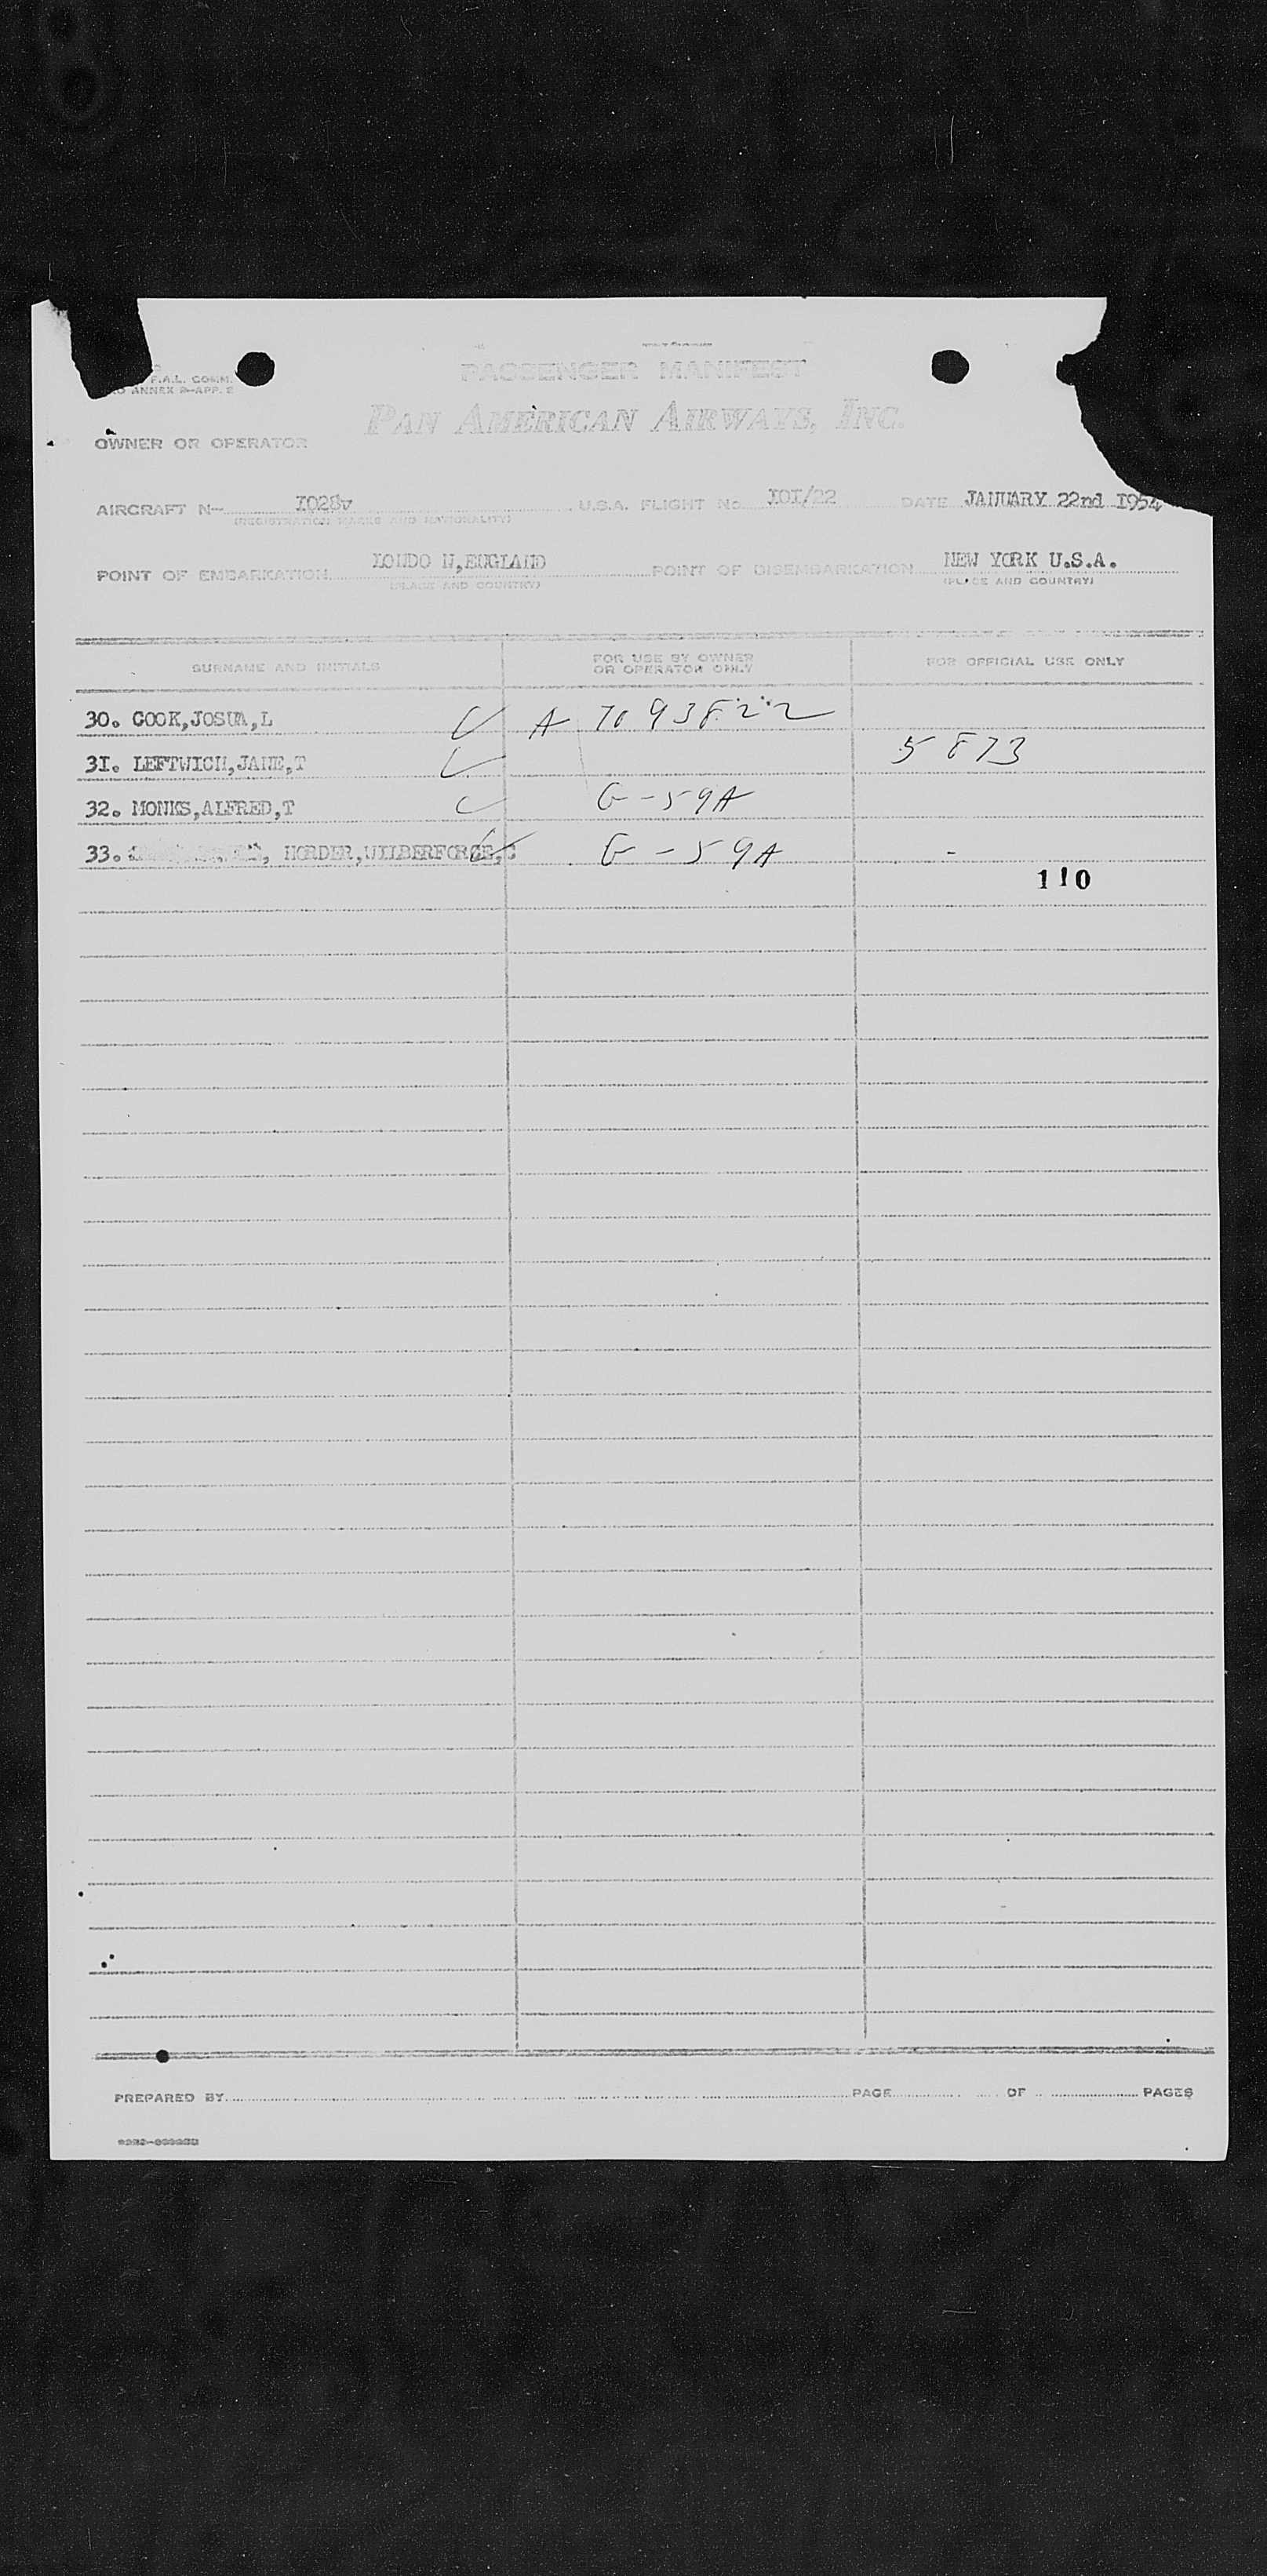 PASSENGER MANIFEST
F.A.L. COMM.
ANNEX 9-APP. 2
PAN AMERICAN AIRWAYS, INC.
OWNER OR OPERATOR
AIRCRAFT N- 1028v U.S.A. FLIGHT No. 101/22 DATE JANUARY 22nd 1954
(REGISTRATION MARKS AND NATIONALITY)
POINT OF EMBARKATION LONDO N,ENGLAND POINT OF DISEMBARKATION NEW YORK U.S.A.
(PLACE AND COUNTRY) (PLACE AND COUNTRY)
SURNAME AND INITIALS FOR USE BY OWNER OR OPERATOR ONLY FOR OFFICIAL USE ONLY
30. COOK,JOSUA,L A 7093822
31. LEFTWICH,JANE,T 5873
32. MONKS,ALFRED,T G-59A
33. HORDER,WILBERFORCE, G-59A -
110
PREPARED BY PAGE OF PAGES